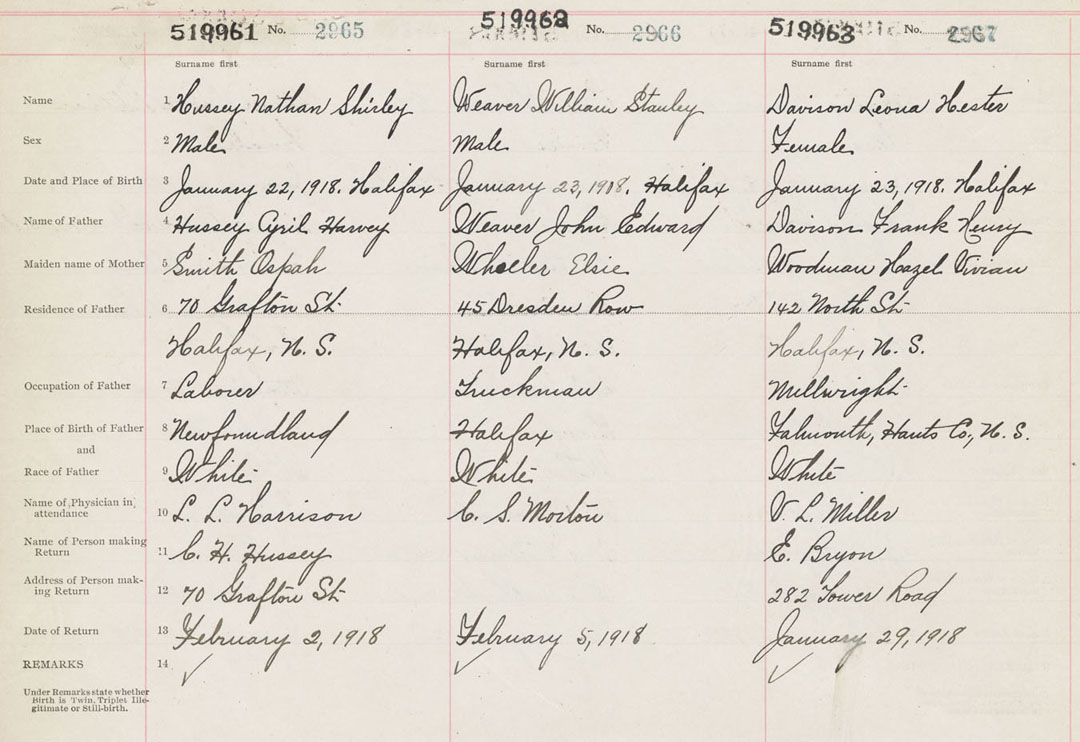 519961 No. 2965 519962 No. 2966 519963 No. 2967
Surname first Surname first Surname first
Name 1 Hussey Nathan Shirley Weaver William Stanley Davison Leona Hester
Sex 2 Male Male Female
Date and Place of Birth 3 January 22, 1918. Halifax January 23, 1918. Halifax January 23, 1918. Halifax
Name of Father 4 Hussey Cyril Harvey Weaver John Edward Davison Frank Henry
Maiden name of Mother 5 Smith Ospah Wheeler Elsie Woodman Hazel Vivian
Residence of Father 6 70 Grafton St. 45 Dresden Row 142 North St.
Halifax, N. S. Halifax, N. S. Halifax, N. S.
Occupation of Father 7 Laborer Truckman Millwright
Place of Birth of Father 8 Newfoundland Halifax Falmouth, Hants Co., N. S.
and
Race of Father 9 White White White
Name of Physician in
attendance 10 L. L. Harrison C. S. Morton V. L. Miller
Name of Person making
Return 11 C. H. Hussey E. Bryon
Address of Person mak-
ing Return 12 70 Grafton St. 282 Tower Road
Date of Return 13 February 2, 1918 February 5, 1918 January 29, 1918
REMARKS 14 ✓ ✓ ✓
Under Remarks state whether
Birth is Twin, Triplet Ille-
gitimate or Still-birth.